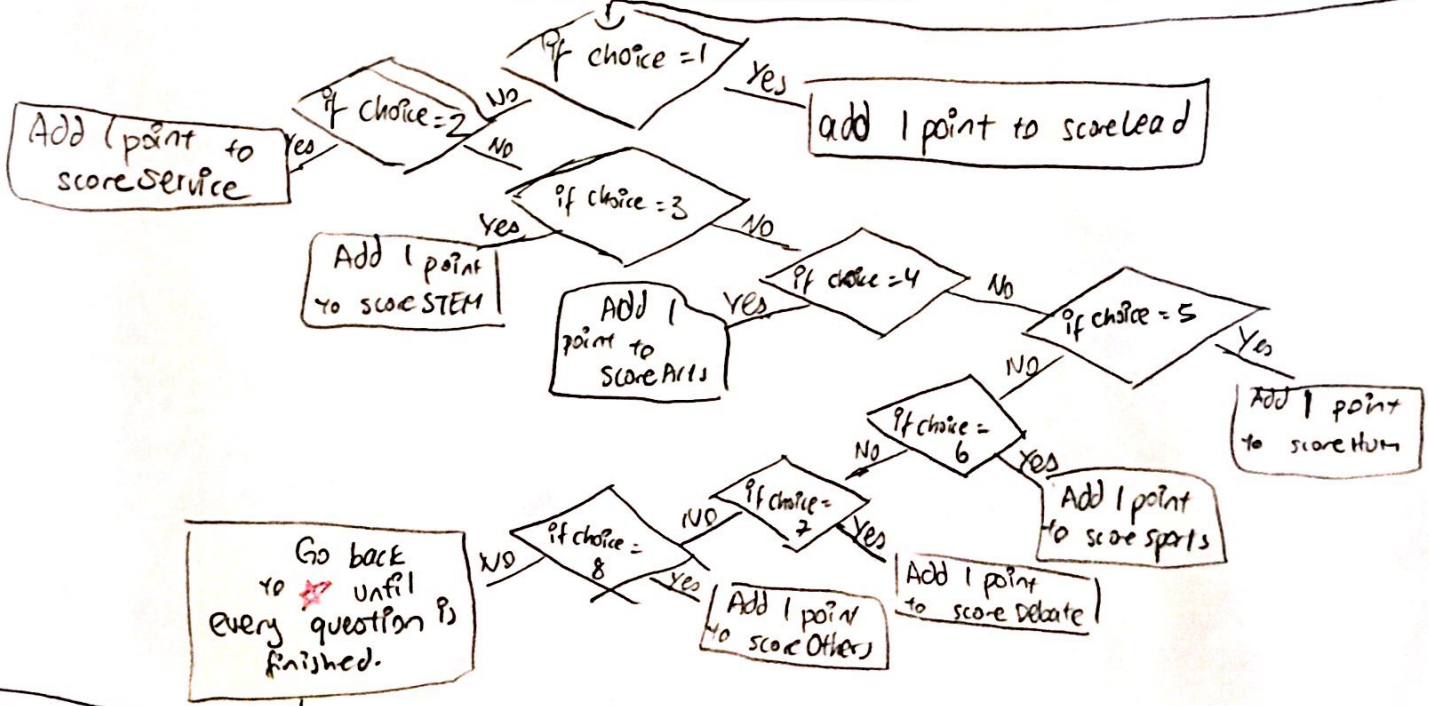 if choice =1
Yes
add 1 point to scoreLead
NO
if choice=2
Yes
Add 1 point to
scoreService
NO
if choice =3
Yes
Add 1 point
to scoreSTEM
NO
if choice =4
Yes
Add 1
point to
scoreArts
NO
if choice = 5
Yes
Add 1 point
to scoreHum
NO
if choice =
6
Yes
Add 1 point
to scoreSports
NO
if choice=
7
Yes
Add 1 point
to scoreDebate
NO
if choice =
8
Yes
Add 1 poin
to scoreOthers
NO
Go back
to ☆ until
every question is
finished.